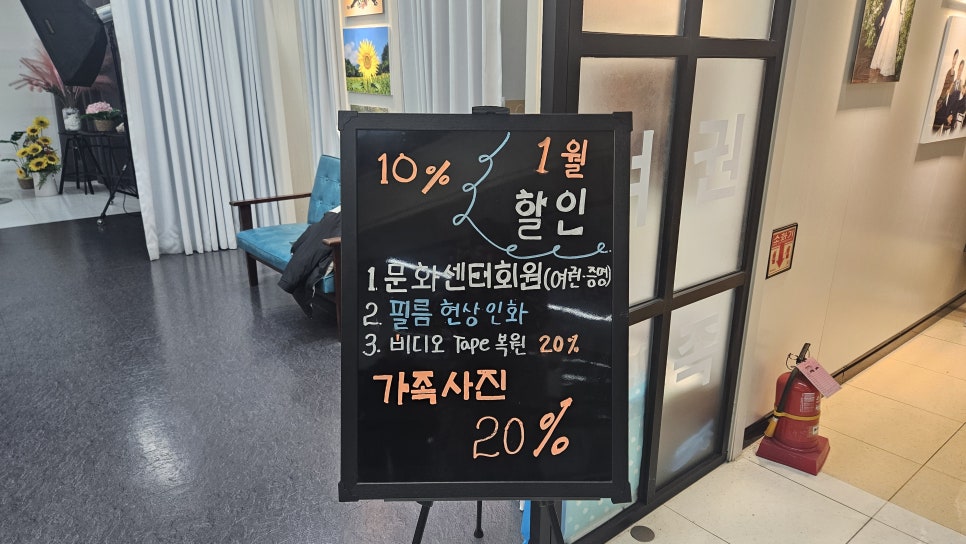 10%
1월
할인
1. 문화센터회원(여권·증명)
2. 필름 현상 인화
3. 비디오 Tape 복원 20%
가족사진
20%
여
권
족
소화기